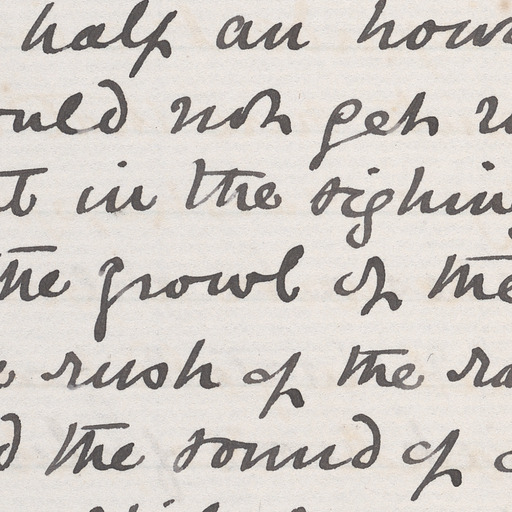 half an hour
ould not get
t in the sighing
the growl of the
rush of the ra
d the sound of